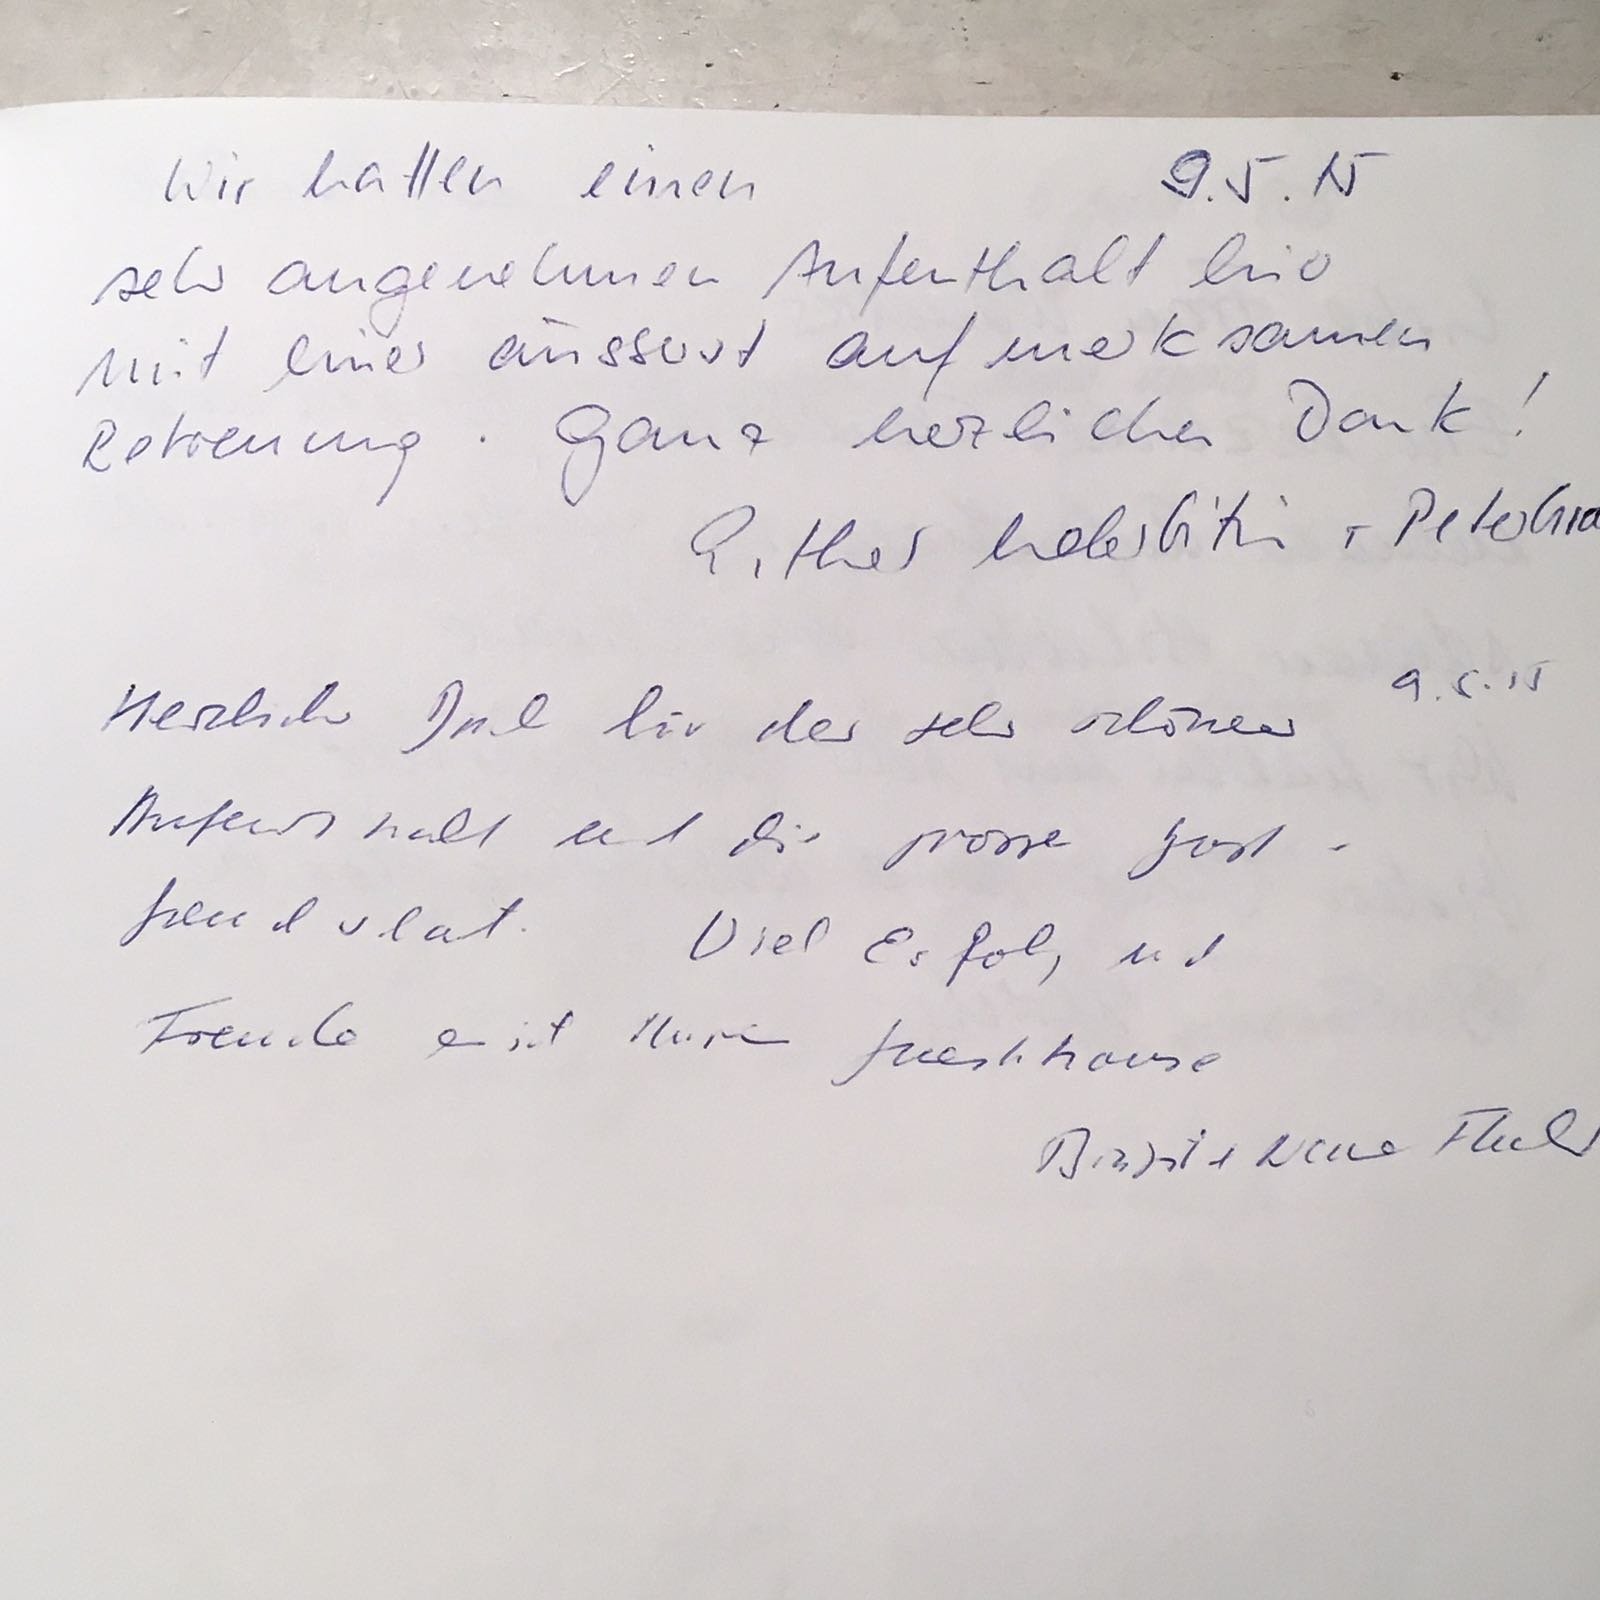 Wir hatten einen 9.5.15
sehr angenehmen Aufenthalt hier
mit einer äusserst aufmerksamen
Betreuung. Ganz herzlichen Dank!
+ Peter
9.5.15
Herzlichen Dank für den sehr schönen
Aufenthalt und die grosse Gast-
freundschaft. Viel Erfolg und
Freude mit Ihrem guesthouse